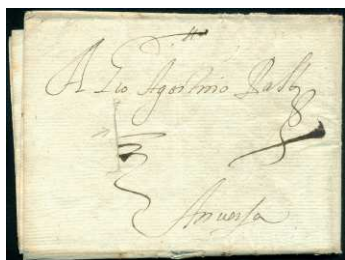 A Gio Agostino Balbi
Anversa